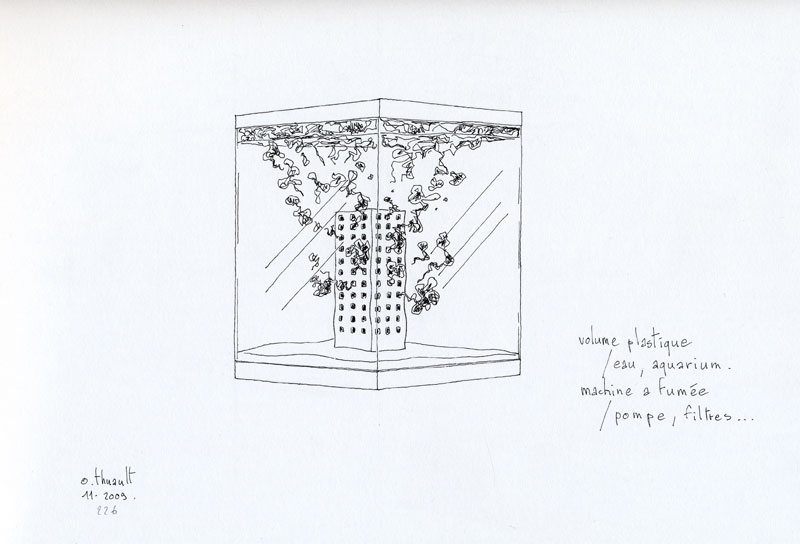 volume plastique
/eau, aquarium.
machine a fumée
/pompe, filtres...
o.thuault
11-2009.
226